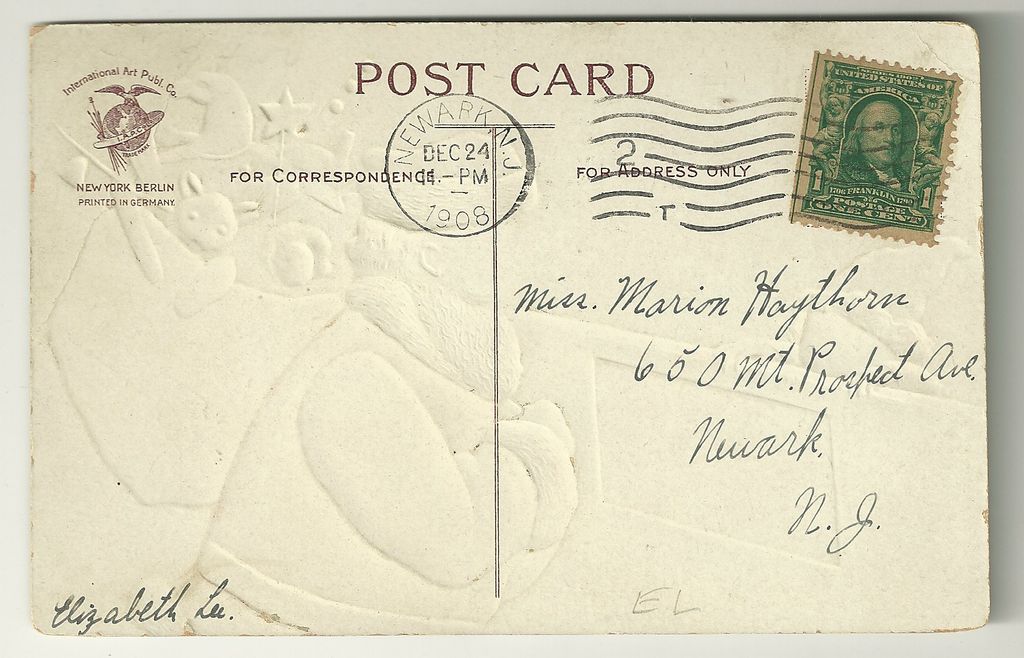 International Art Publ. Co.
TRADE MARK
NEW YORK BERLIN
PRINTED IN GERMANY.
POST CARD
FOR CORRESPONDENCE
FOR ADDRESS ONLY
NEWARK, N.J.
DEC 24
- PM
1908
2
T
UNITED STATES OF
AMERICA
1 1706 FRANKLIN 1790 1
POSTAGE
ONE CENT
Miss. Marion Haythorn
650 Mt. Prospect Ave.
Newark,
N. J.
Elizabeth Lee.
EL